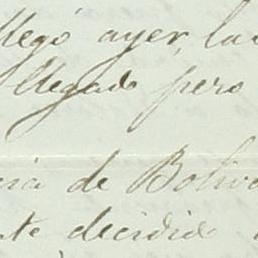 llegó ayer, la
llegado pero
cia de Boliv
te decidido